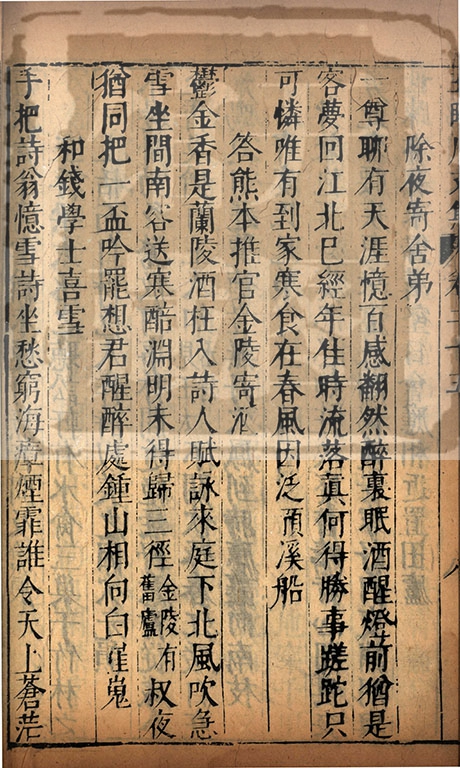 王臨川文集 卷二十五
八
除夜寄舍弟
一尊聊有天涯憶百感翻然醉裏眠酒醒燈前猶是
客夢回江北已經年佳時流落真何得勝事蹉跎只
可憐唯有到家寒食在春風因泛預溪船
答熊本推官金陵寄酒
鬱金香是蘭陵酒枉入詩人賦詠來庭下北風吹急
雪坐間南客送寒醅淵明未得歸三徑金陵有舊廬叔夜
猶同把一盃吟罷想君醒醉處鍾山相向白嵬
和錢學士喜雪
手把詩翁憶雪詩坐愁窮海瘴煙霏誰令天上蒼茫